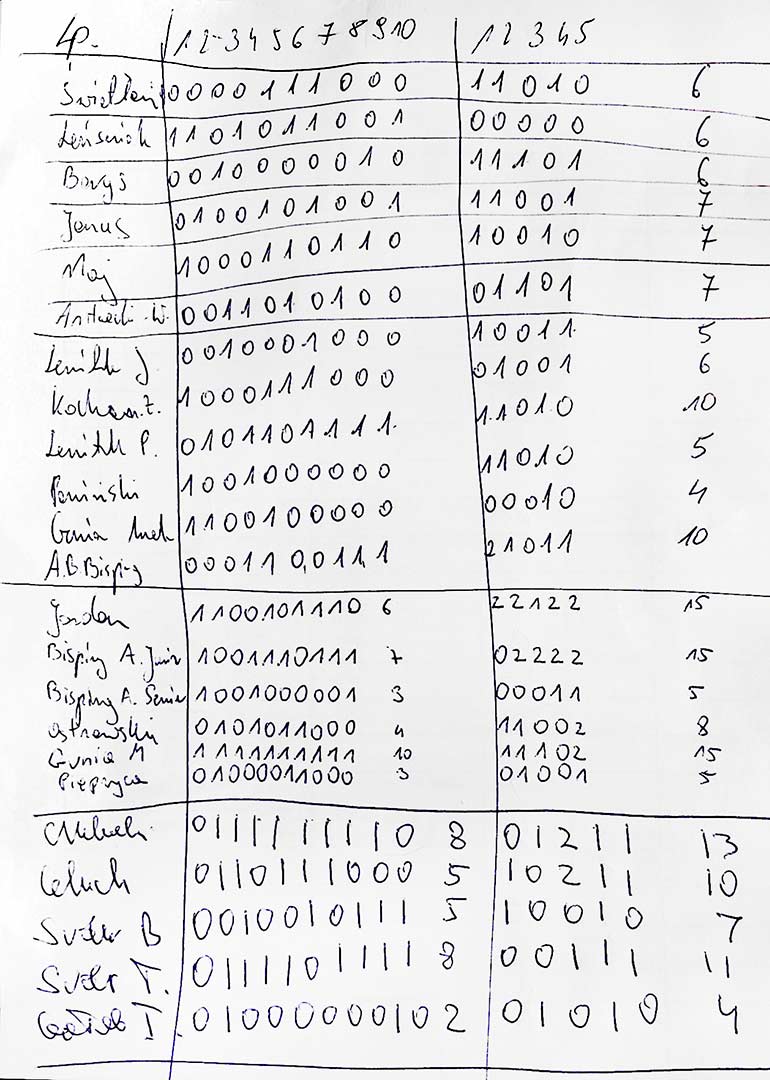 Lp. 1 2 3 4 5 6 7 8 9 10 1 2 3 4 5
0 0 0 0 1 1 1 0 0 0 1 1 0 1 0 6
1 1 0 1 0 1 1 0 0 1 0 0 0 0 0 6
Borys 0 0 1 0 0 0 0 0 1 0 1 1 1 0 1 6
Janus 0 1 0 0 1 0 1 0 0 1 1 1 0 0 1 7
Maj 1 0 0 0 1 1 0 1 1 0 1 0 0 1 0 7
W. 0 0 1 1 0 1 0 1 0 0 0 1 1 0 1 7
J. 0 0 1 0 0 0 1 0 0 0 1 0 0 1 1 5
1 0 0 0 1 1 1 0 0 0 0 1 0 0 1 6
P. 0 1 0 1 1 0 1 1 1 1 1 1 0 1 0 10
1 0 0 1 0 0 0 0 0 0 1 1 0 1 0 5
Gunia 1 1 0 0 1 0 0 0 0 0 0 0 0 1 0 4
A.B. Bisping 0 0 0 1 1 0 0 1 1 1 2 1 0 1 1 10
Jordan 1 1 0 0 1 0 1 1 1 0 6 2 2 1 2 2 15
Bisping A. Junior 1 0 0 1 1 1 0 1 1 1 7 0 2 2 2 2 15
Bisping A. Senior 1 0 0 1 0 0 0 0 0 1 3 0 0 0 1 1 5
Ostrowski 0 1 0 1 0 1 1 0 0 0 4 1 1 0 0 2 8
Gunia M 1 1 1 1 1 1 1 1 1 1 10 1 1 1 0 2 15
Pieprzyca 0 1 0 0 0 0 1 1 0 0 0 3 0 1 0 0 1 5
0 1 1 1 1 1 1 1 1 0 8 0 1 2 1 1 13
0 1 1 0 1 1 1 0 0 0 5 1 0 2 1 1 10
B 0 0 1 0 0 1 0 1 1 1 5 1 0 0 1 0 7
T. 0 1 1 1 1 0 1 1 1 1 8 0 0 1 1 1 11
I. 0 1 0 0 0 0 0 0 1 0 2 0 1 0 1 0 4